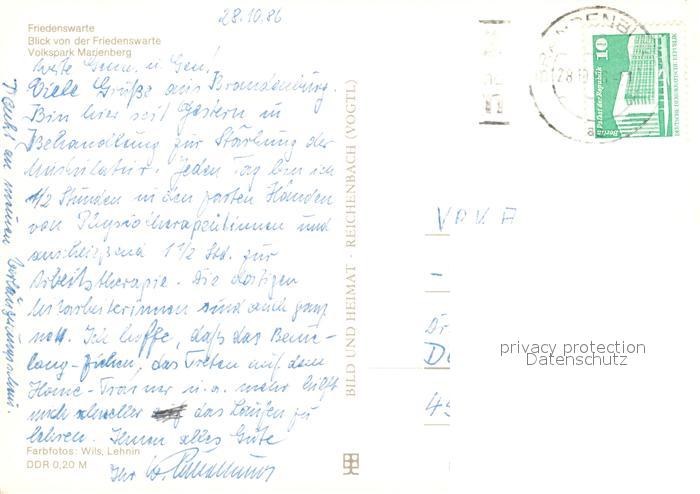 28.10.86
Friedenswarte
Blick von der Friedenswarte
Volkspark Marienberg
Viele Grüße aus Brandenburg.
Bin hier seit gestern in
Behandlung zur Stärkung der
Muskulatur. Jeden Tag bin ich
1/2 Stunden in den zarten Händen
von Physiotherapeutinnen und
anschließend 1 1/2 Std. zur
Arbeitstherapie. Die dortigen
Mitarbeiterinnen sind auch ganz
nett. Ich hoffe, daß das
das Treten auf dem
Home-Trainer u.a. mehr hilft
noch schneller das Laufen zu
lehren. Ihnen alles Gute
Ihr
Farbfotos: Wils, Lehnin
DDR 0,20 M
BILD UND HEIMAT · REICHENBACH (VOGTL)
10
Berlin, Palast der Republik
DEUTSCHE DEMOKRATISCHE REPUBLIK
privacy protection
Datenschutz